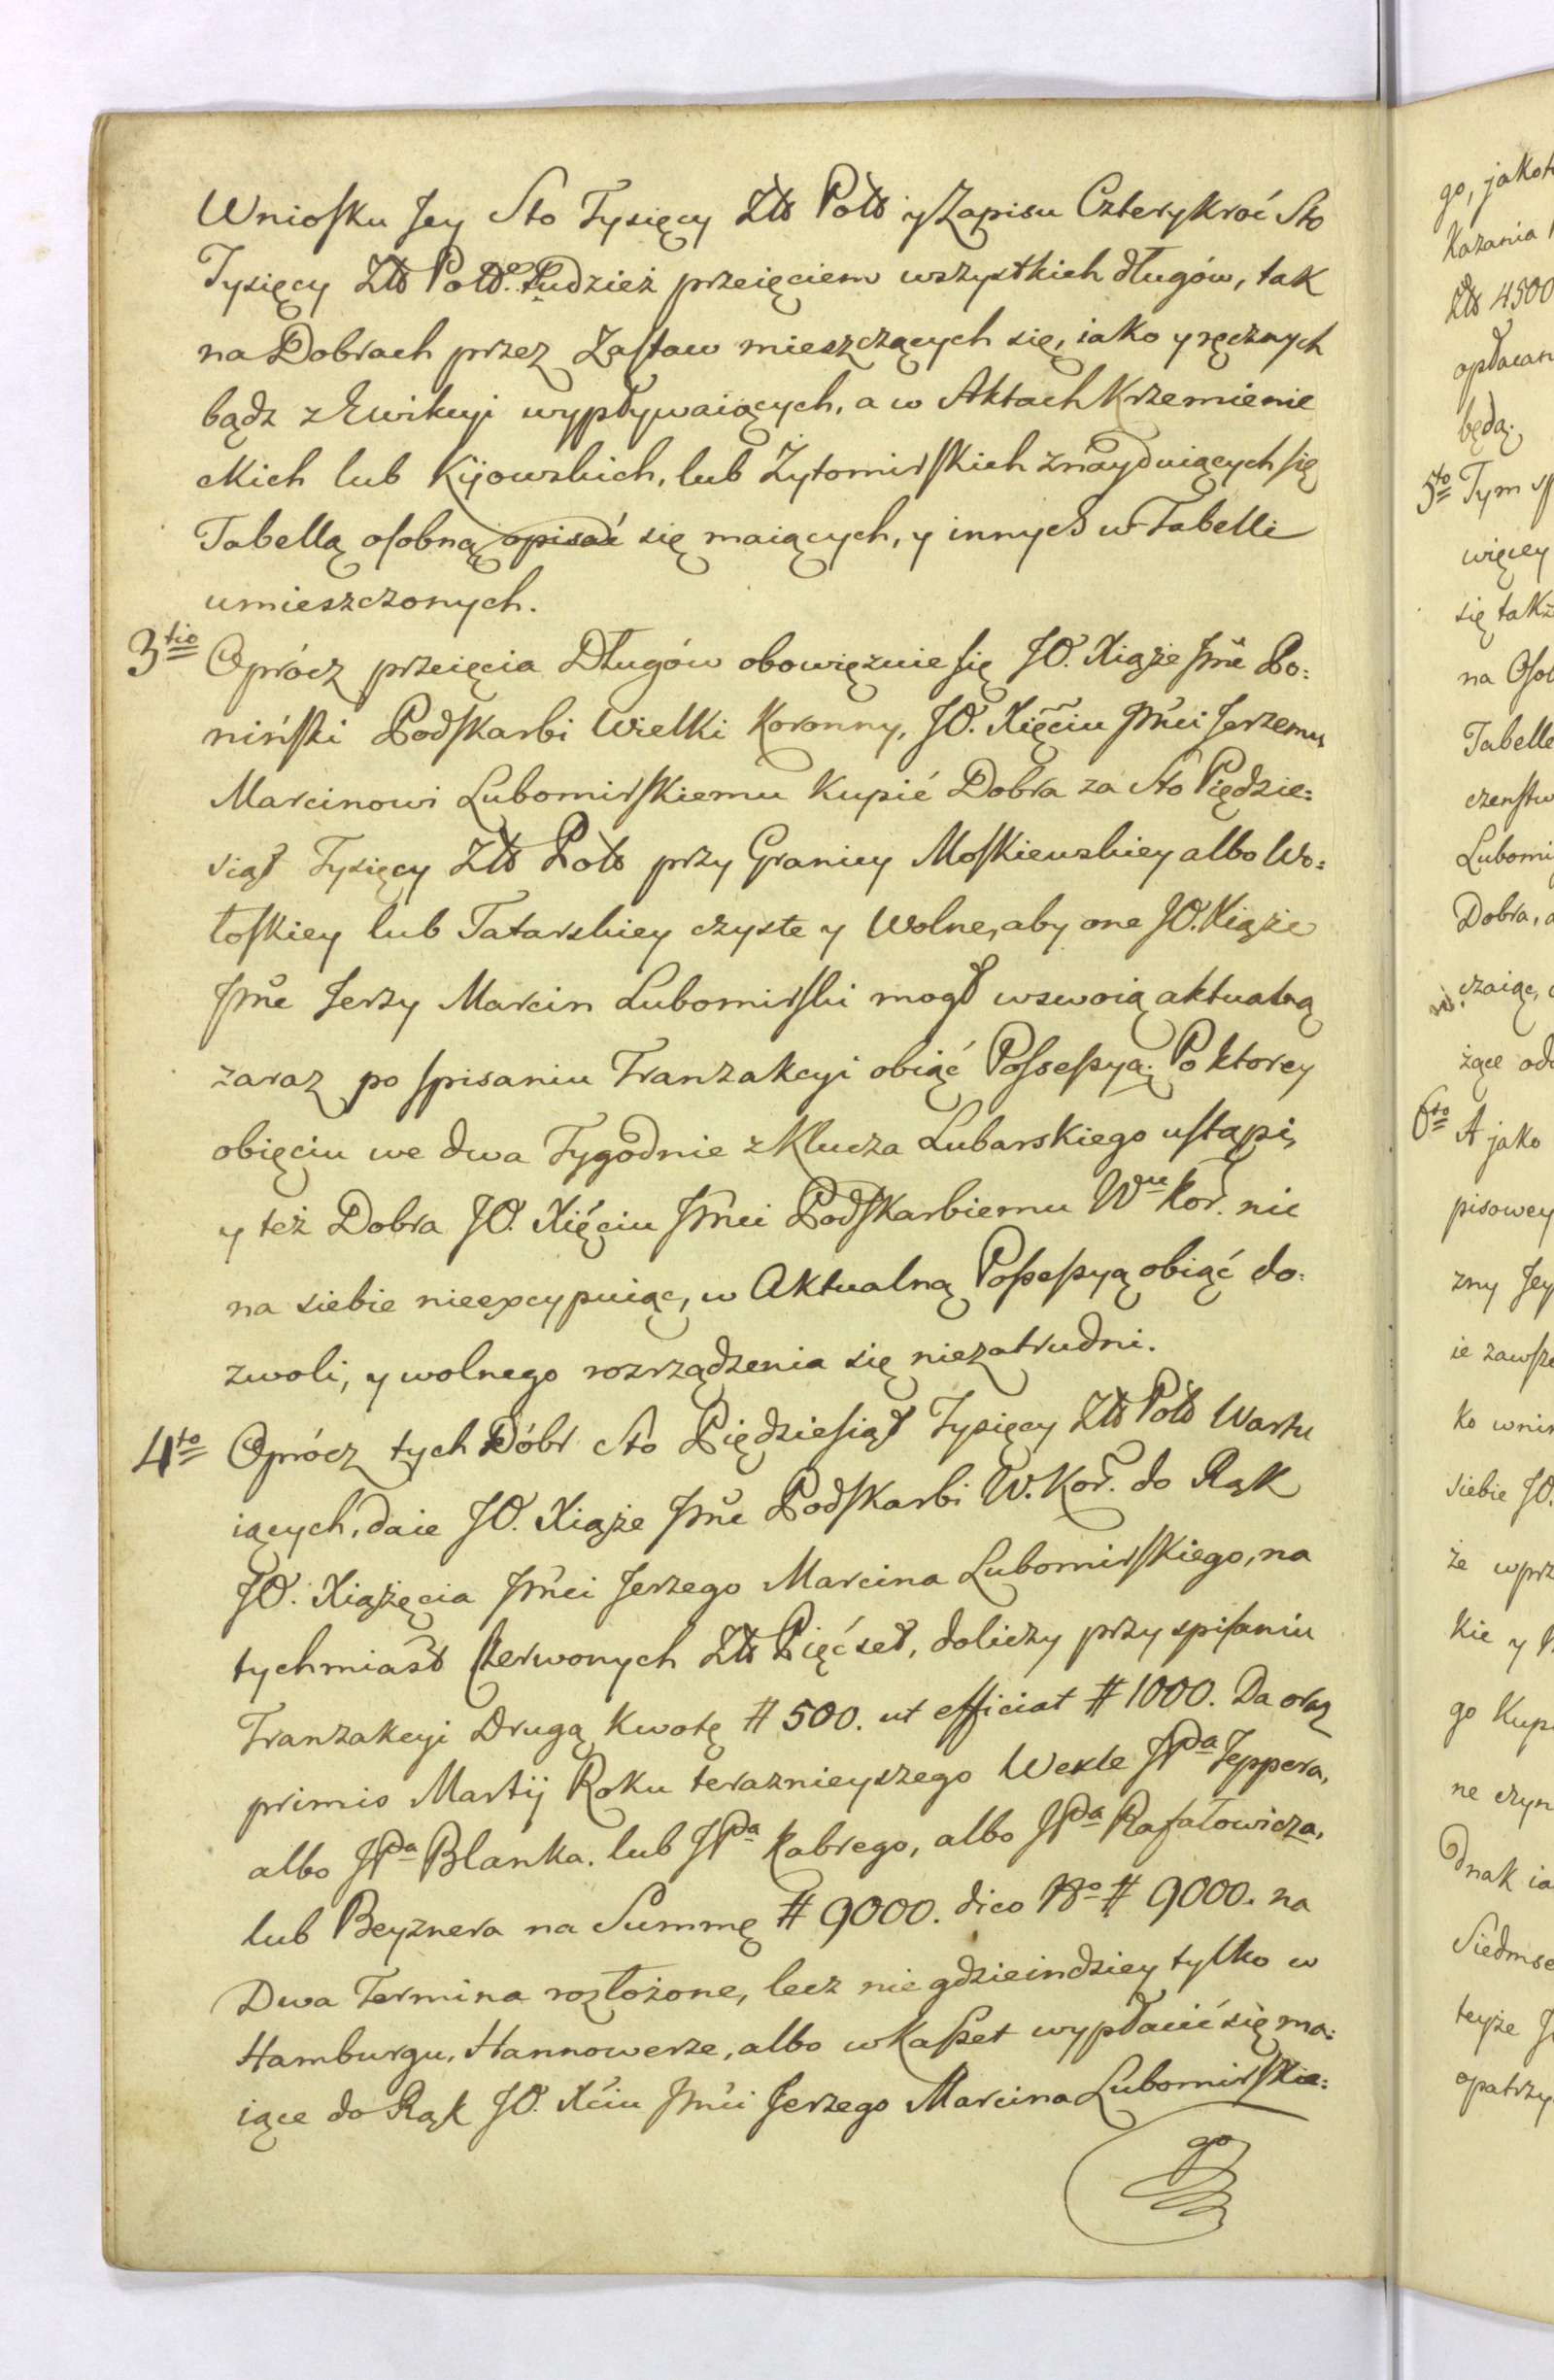 Wniosku Jey Sto Tysięcy Złł Połł y Zapisu Czterykroć Sto
Tysięcy Złł Połł. Tudzież przeięciem wszystkich długów, tak
na Dobrach przez Zastaw mieszczących się, iako y ręcznych
bądz z Ewikcyi wypływaiących, a w Aktach Krzemienie
ckich lub Kijowskich, lub Żytomirskich znayduiących się
Tabellą osobną opisać się maiących, y innych w Tabelli
umieszczonych.
3tio Oprócz przeięcia Długów obowięzuie się JO. Xiąże Jmć Po:
niński Podskarbi Wielki Koronny, JO. Xięciu Jmci Jerzemu
Marcinowi Lubomirskiemu kupić Dobra za Sto Piędzie:
siąt Tysięcy Złł Poll przy Granicy Moskiewskiey albo Wo:
łoskiey lub Tatarskiey czyste y Wolne, aby one JO. Xiąże
Jmć Jerzy Marcin Lubomirski mogł w swoią aktualną
zaraz po spisaniu Tranzakcyi obiąć Possessyą. Po ktorey
obięciu we dwa Tygodnie z Klucza Lubarskiego ustąpi,
y też Dobra JO. Xięciu Jmci Podskarbiemu Wu Kor. nic
na siebie nieexcypuiąc, w Aktualną Possessyą obiąć do:
zwoli, y wolnego rozrządzenia się niezatrudni.
4to Oprócz tych Dóbr Sto Piędziesiąt Tysięcy Złł Połł Wartu
iących, daie JO. Xiąże Jmć Podskarbi W. Kor. do Rąk
JO. Xiążęcia Jmci Jerzego Marcina Lubomirskiego, na
tychmiast Czerwonych Złł Pięćset, doliczy przy spisaniu
Tranzakcyi Drugą Kwotę # 500. ut efficiat # 1000. Da oraz
primis Martij Roku teraznieyszego Wexle JPa Teppera,
albo JPa Blanka. lub JPa Kabrego, albo JPa Rafałowicza,
lub Beyznera na Summę # 9000. dico No # 9000. na
Dwa Termina rozłożone, lecz nie gdzieindziey tylko w
Hamburgu, Hannowerze, albo w Kassel wypłacić się ma:
iące do Rąk JO. Xcia Jmci Jerzego Marcina Lubomirskie:
go
go, jakot
Kazania
Złł 4500
opłacan
będą.
5to Tym sp
więcey
się takż
na Osob
Tabelle
czenstw
Lubomi
Dobra, a
czaiąc,
żące od
6to A jako
pisowey
zny Jey
ie zawsze
ko wni
siebie JO.
że wprz
kie y
go Kup
ne czyn
dnak ia
Siedmse
teyże J
opatrzy